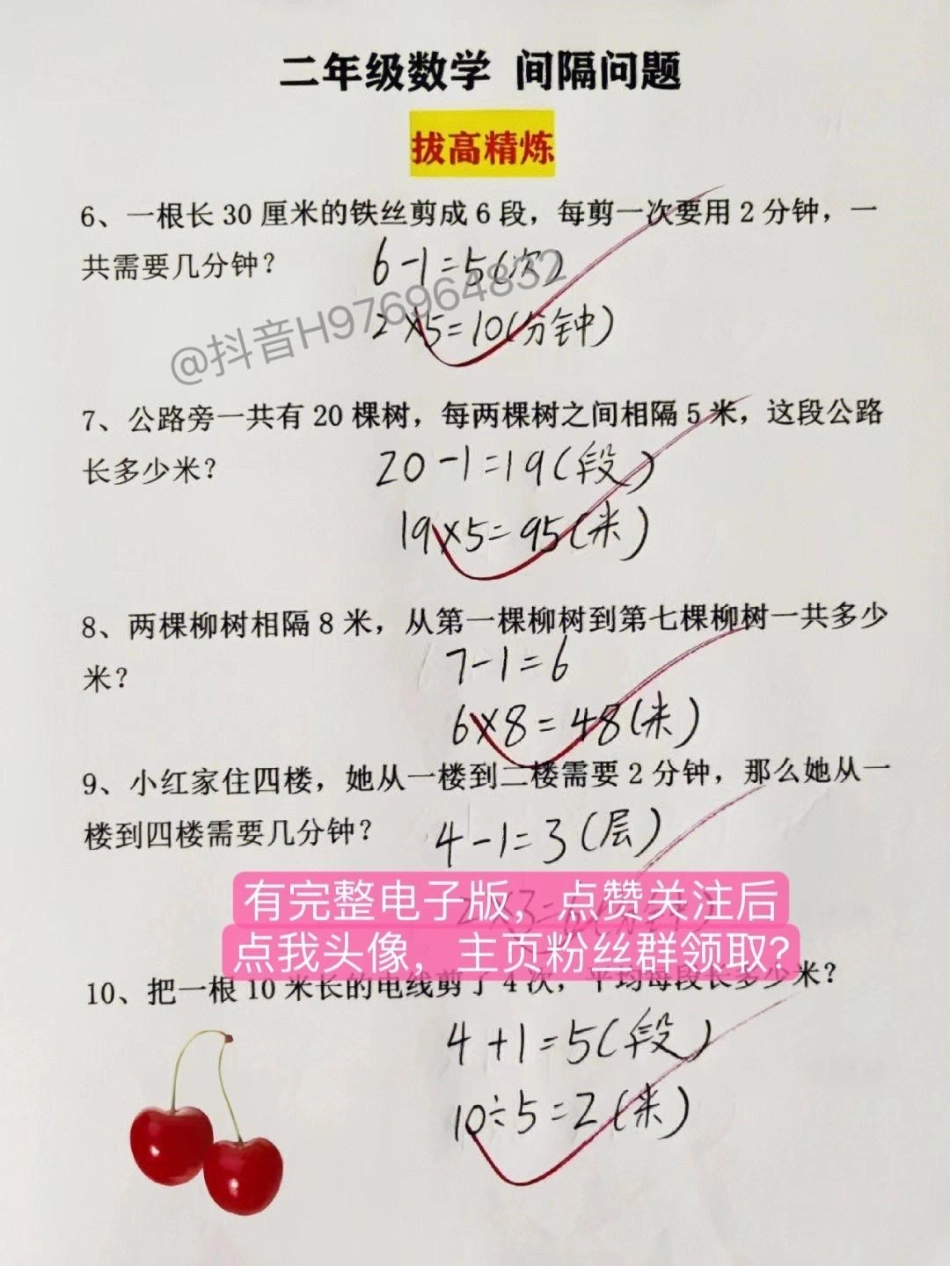 二年级数学 间隔问题
拔高精炼
6、一根长 30 厘米的铁丝剪成 6 段，每剪一次要用 2 分钟，一
共需要几分钟？
6-1=5(次)
2×5=10(分钟)
@抖音H976964832
7、公路旁一共有 20 棵树，每两棵树之间相隔 5 米，这段公路
长多少米？
20-1=19(段)
19×5=95(米)
8、两棵柳树相隔 8 米，从第一棵柳树到第七棵柳树一共多少
米？
7-1=6
6×8=48(米)
9、小红家住四楼，她从一楼到二楼需要 2 分钟，那么她从一
楼到四楼需要几分钟？
4-1=3(层)
2×3=
有完整电子版，点赞关注后
点我头像，主页粉丝群领取?
10、把一根 10 米长的电线剪了 4 次，平均每段长多少米？
4+1=5(段)
10÷5=2(米)